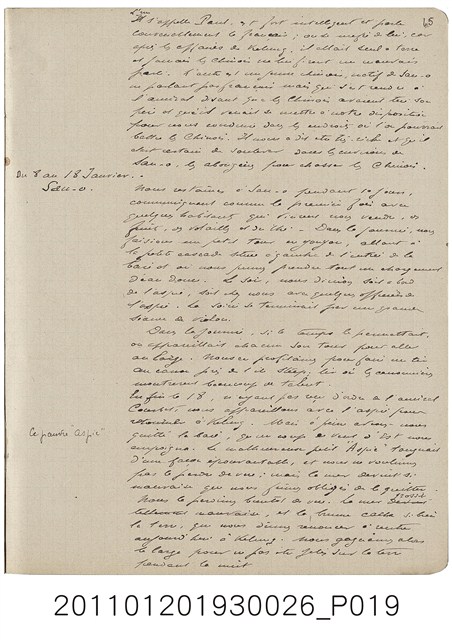 65
Il s'appelle Paul, est fort intelligent et parle
convenablement le français; on se méfie de lui, car
après les affaires de Kelung, il allait seul à terre
et jamais les Chinois ne lui firent un mauvais
parti. L'autre est un jeune chinois, natif de Sau-o
ne parlant pas français mais qui s'est rendu à
l'amiral disant que les Chinois avaient tué son
père et qu'il venait se mettre à notre disposition
pour nous conduire dans les endroits où l'on pourrait
battre les Chinois. Il nous a dit
était certain de soulever dans les environs de
Sau-o, les aborigènes pour chasser les Chinois.
Du 8 au 18 Janvier.
Sau-o.
Nous restâmes à Sau-o pendant 10 jours,
communiquant comme la première fois avec
quelques habitants qui vinrent nous vendre des
fruits, des volailles et du thé. Dans la journée, nous
faisions un petit tour en youyou, allant à
la petite cascade située à gauche de l'entrée de la
baie et où nous prîmes prendre tout un chargement
d'eau douce. Le soir, nous dînions soit à bord
de l'aspic, soit chez nous avec quelques officiers de
l'aspic. La soirée se terminait par une grande
séance de violon.
Dans la journée, si le temps le permettait,
on appareillait chacun son tour pour aller
au large. Nous en profitâmes pour faire un tir
au canon près de l'île Steep; tir où les canonniers
montrèrent beaucoup de talent.
Enfin le 18, n'ayant pas vu d'ordre de l'amiral
Courbet, nous appareillons avec l'aspic pour
à Kelung. Mais à peine avons-nous
quitté la baie, qu'un coup de vent d'Est nous
empoigne. Le malheureux petit Aspic tanguait
Ce pauvre "Aspic"
d'une façon épouvantable, et nous ne voulions
pas le perdre de vue; mais la mer devint si
mauvaise que nous fûmes obligés de le quitter.
Nous le perdîmes bientôt de vue. La mer
tellement mauvaise, et la brume cache si bien
la terre, que nous dûmes renoncer à rentrer
aujourd'hui à Kelung. Nous gagnâmes alors
le large pour ne pas être jetés sur la terre
pendant la nuit
201101201930026_P019